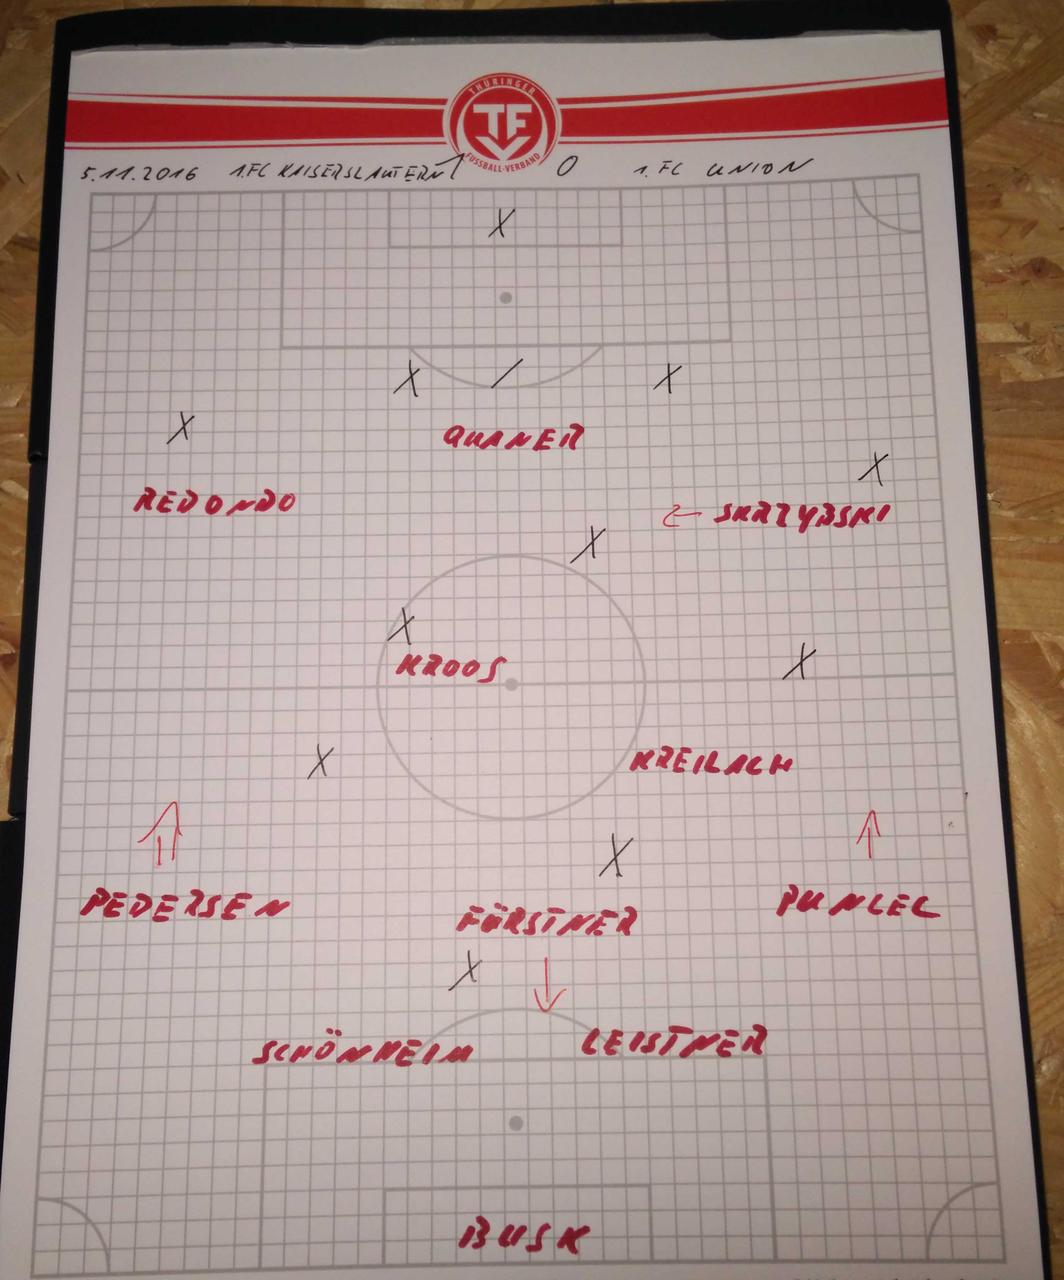 THÜRINGER
TF
FUSSBALL-VERBAND
5.11.2016 1.FC KAISERSLAUTERN 1 0 1. FC UNION
X
X / X
X
QUANER
X
REDONDO
← SKRZYBSKI
X
X
KROOS
X
KREILACH
X
X
PEDERSEN
FÜRSTNER
PUNCEC
X
SCHÖNHEIM
LEISTNER
BUSK